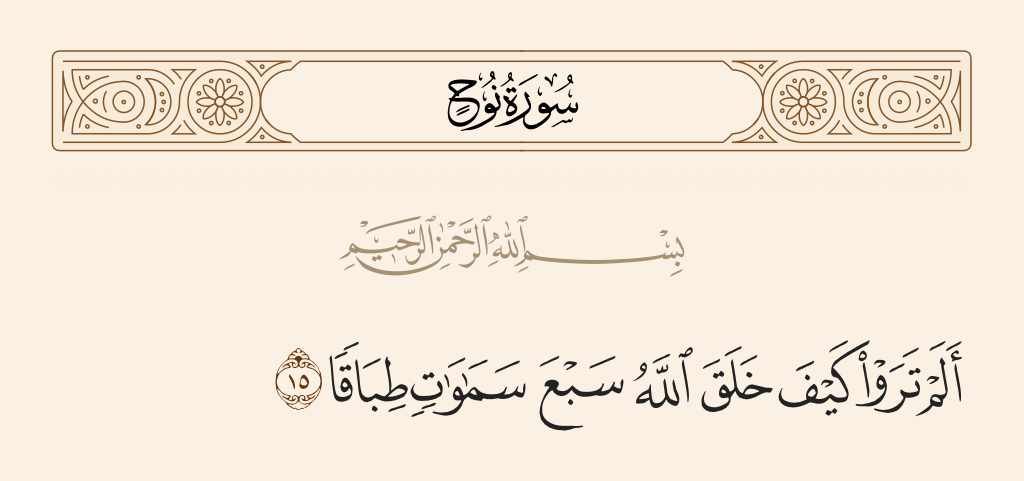 سُورَةُ نُوحٍ
بِسْمِ ٱللَّهِ ٱلرَّحْمَٰنِ ٱلرَّحِيمِ
أَلَمْ تَرَوْا۟ كَيْفَ خَلَقَ ٱللَّهُ سَبْعَ سَمَٰوَٰتٍ طِبَاقًا ١٥